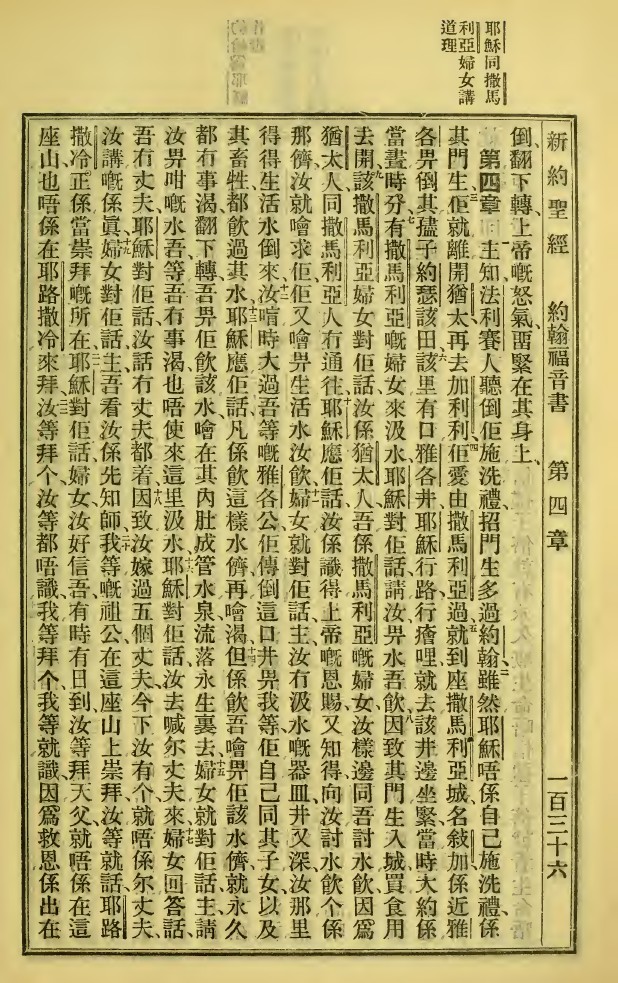 耶穌同撒馬
利亞婦女講
道理
新約聖經 約翰福音書 第四章 一百三十六
倒翻下轉上帝嘅怒氣畱緊在其身上
第四章 一主知法利賽人聽倒佢施洗禮招門生多過約翰二雖然耶穌唔係自己施洗禮係
其門生三佢就離開猶太再去加利利四佢愛由撒馬利亞過五就到座撒馬利亞城名敍加係近雅
各畀倒其孻子約瑟該田六該里有口雅各井耶穌行路行㾪哩就去該井邊坐緊當時大約係
當晝時分七有撒馬利亞嘅婦女來汲水耶穌對佢話請汝畀水吾飲八因致其門生入城買食用
去開九該撒馬利亞婦女對佢話汝係猶太人吾係撒馬利亞嘅婦女汝樣邊同吾討水飲因爲
猶太人同撒馬利亞人冇通往十耶穌應佢話汝係識得上帝嘅恩賜又知得向汝討水飲个係
那儕汝就噲求佢佢又噲畀生活水汝飲十一婦女就對佢話主汝冇汲水嘅器皿井又深汝那里
得得生活水倒來十二汝喑時大過吾等嘅雅各公佢傳倒這口井畀我等佢自己同其子女以及
其畜牲都飲過其水十三耶穌應佢話凡係飲這樣水儕再噲渴十四但係飲吾噲畀佢該水儕就永久
都冇事渴翻下轉吾畀佢飲該水噲在其內肚成管水泉流落永生裏去十五婦女就對佢話主請
汝畀咁嘅水吾等吾冇事渴也唔使來這里汲水十六耶穌對佢話汝去喊尔丈夫來十七婦女回答話
吾冇丈夫耶穌對佢話汝話冇丈夫都着十八因致汝嫁過五個丈夫今下汝有个就唔係尔丈夫
汝講嘅係眞十九婦女對佢話主吾看汝係先知師二十我等嘅祖公在這座山上崇拜汝等就話耶路
撒冷正係當崇拜嘅所在二一耶穌對佢話婦女汝好信吾有時有日到汝等拜天父就唔係在這
座山也唔係在耶路撒冷來拜二二汝等拜个汝等都唔識我等拜个我等就識因爲救恩係出在